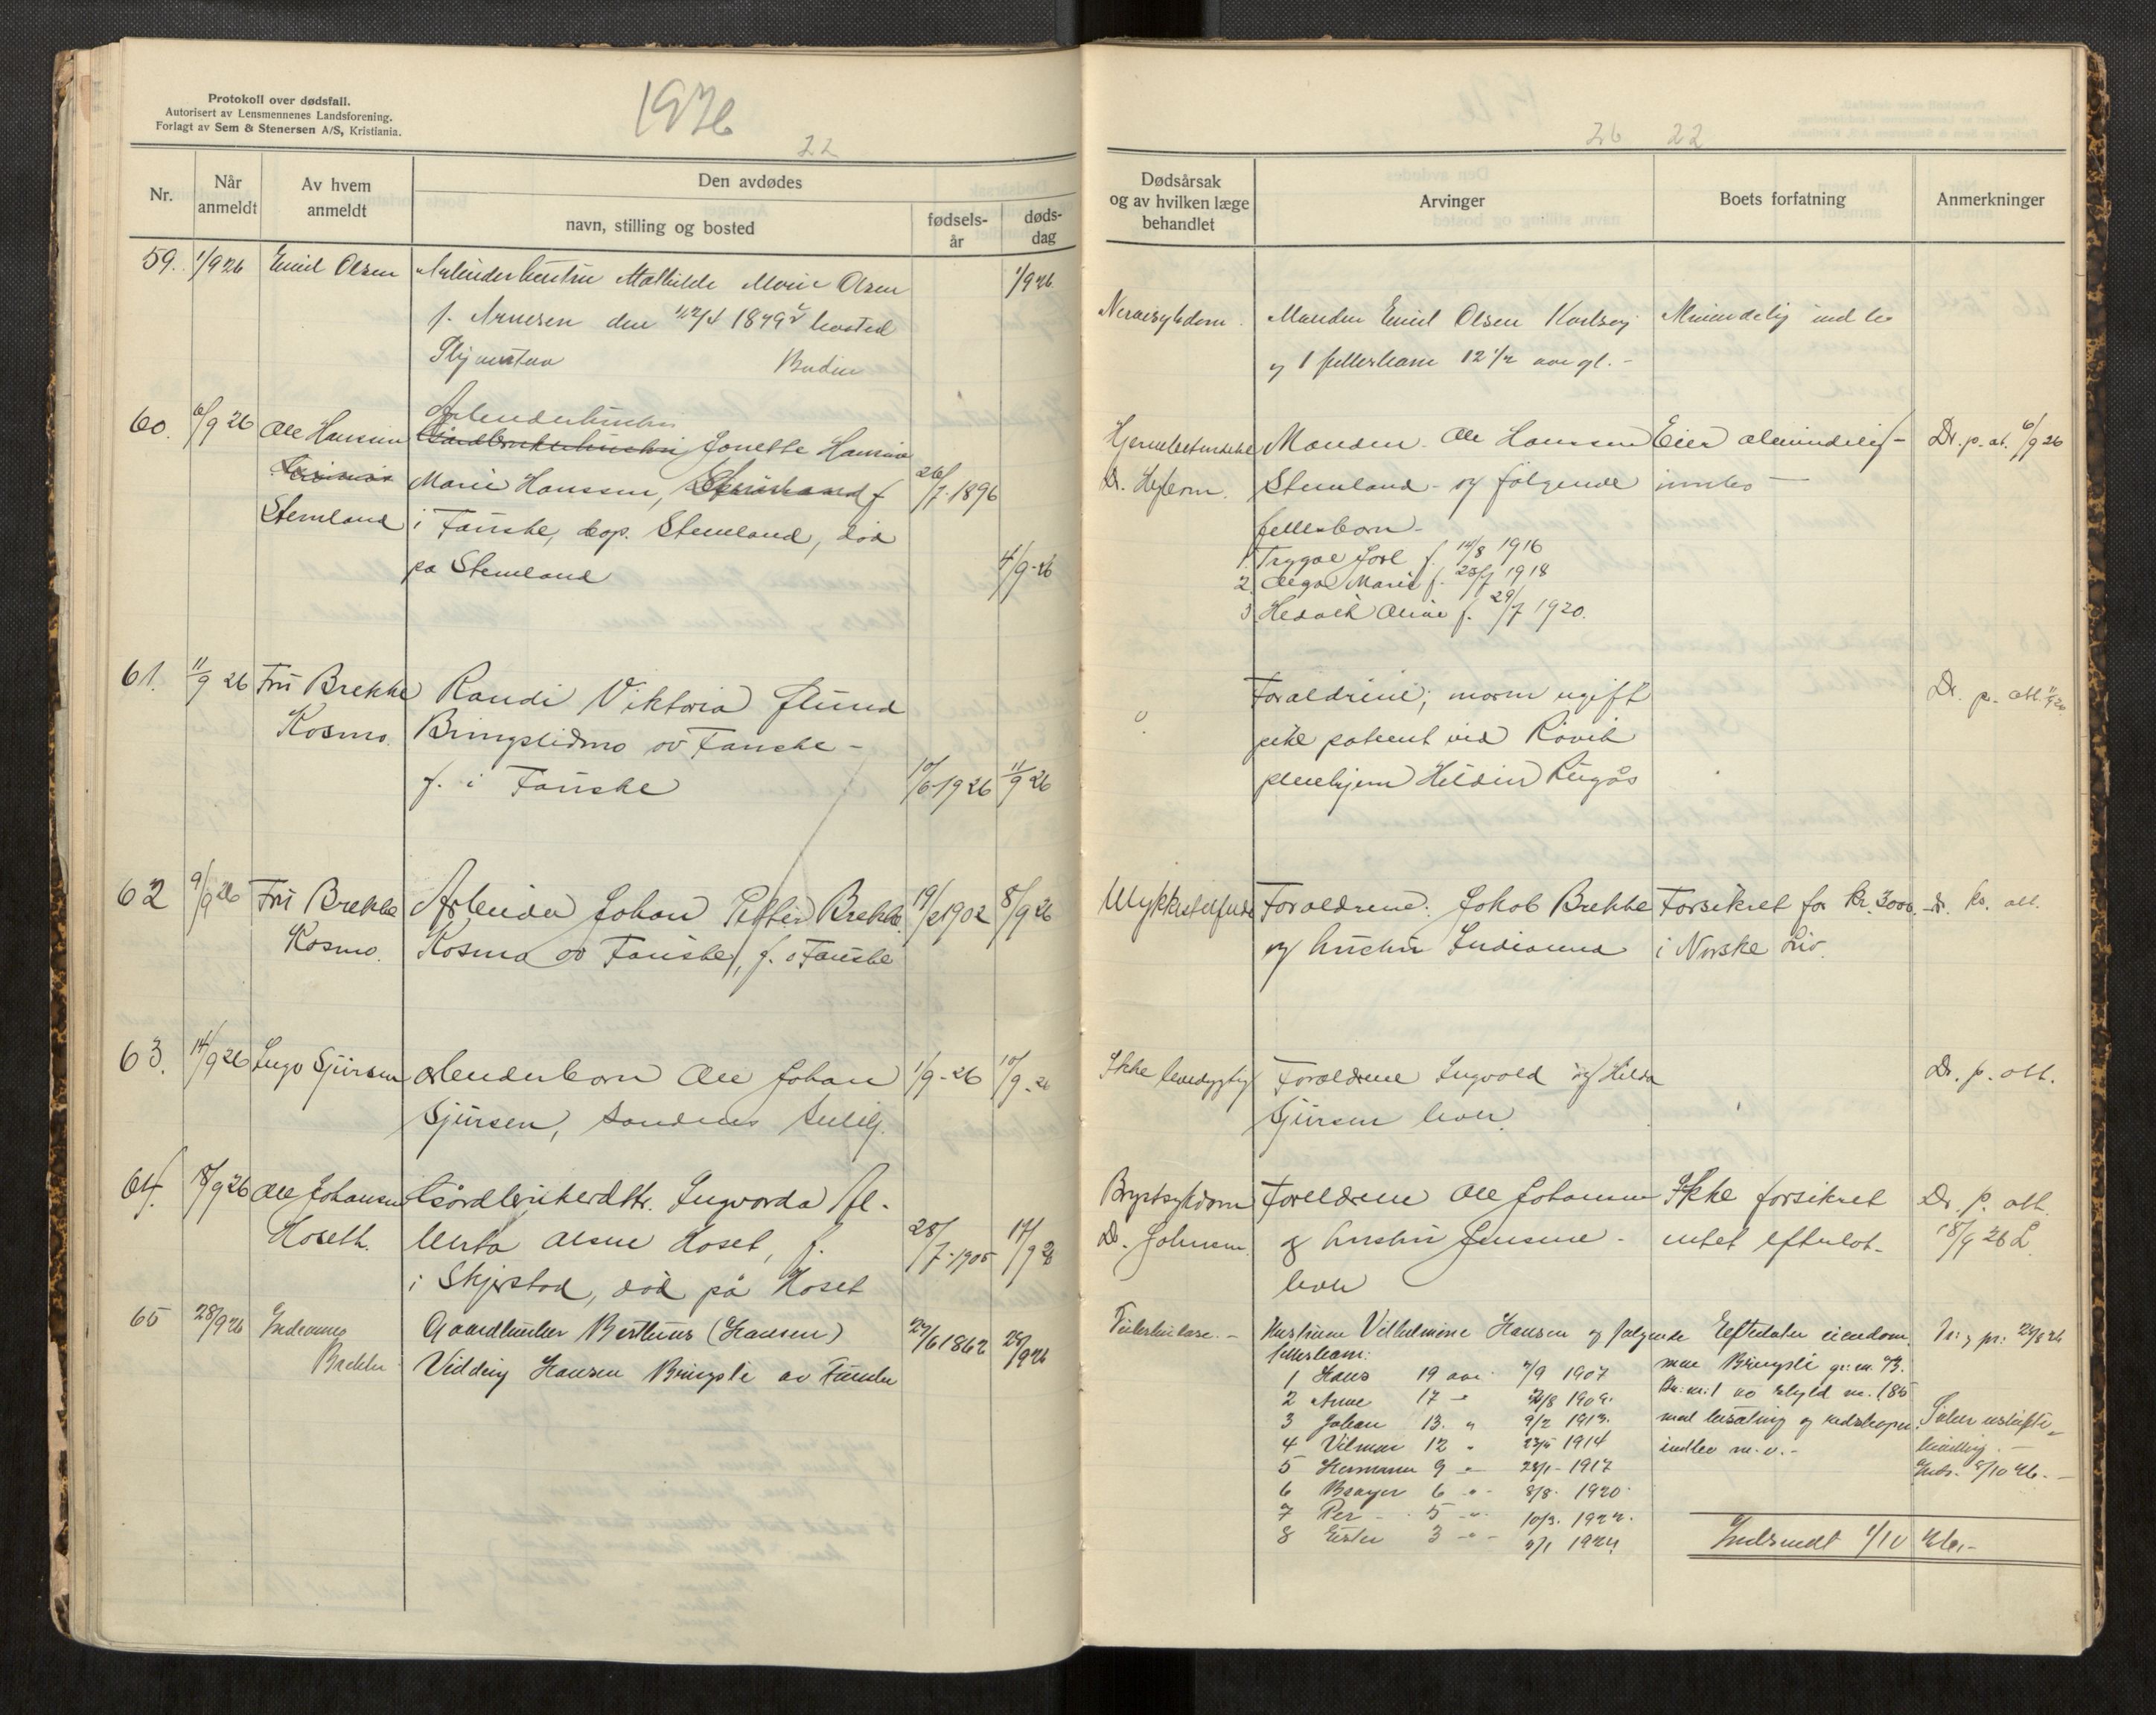 Protokoll over dødsfall.
Autorisert av Lensmennenes Landsforening.
Forlagt av Sem & Stenersen A/S, Kristiania.
1926
22
Nr.
Når anmeldt
Av hvem anmeldt
Den avdødes
navn, stilling og bosted
fødsels-
år
døds-
dag
59. 1/9 26 Emil Olsen Arbeiderhustru Mathilde Marie Olsen 1/9 26
f. Arnesen den 1879 bosted
Bodin
60. 6/9 26 Ole Hanssen Arbeiderhustru
Gårdbrukerhustru Jonette Hansine
Marie Hanssen, f 26/7-1896
Stemland i Fauske, bop. Stemland, död
på Stemland 4/9-26
61. 11/9 26 Fru Brekke Randi Viktoria
Kosmo. Bringslidmo av Fauske -
f. i Fauske 10/6-1926 11/9 26
62 9/9 26 Fru Brekke Arbeider Johan Petter Brekke 19/2 1902 8/9 26
Kosmo. Kosmo av Fauske, f. i Fauske
63. 14/9 26 Ingv Sjursen Arbeiderbarn Ole Johan 1/9-26 10/9-26
Sjursen, Sandnes
64. 18/9 26 Ole Johansen Gårdbrukerdttr. Ingvarda Al-
Hoseth. berta Olsen Hoset, f. 28/7-1905 17/9 26
i Skjerstad, död på Hoset
65 28/9 26 Indianna Gaardbruker Bertheus (Hansen) 27/6 1862 25/9 26
Brekke Vidding Hansen Bringsli av Fauske
26 22
Dødsårsak
og av hvilken læge
behandlet
Arvinger
Boets forfatning
Anmerkninger
Nervesykdom. Manden Emil Olsen Almindelig indbo
og 1 fellesbarn 12 1/2 aar gl. -
Hjernebetendelse Manden. Ole Hanssen Eier almindelig Dr. p. at. 6/9 26
Dr. Stemland - og følgende innbo
fellesbarn -
1. Trygve Joel f. 14/8 1916
2. Olga Marie f. 25/7 1918
3 Hedvik Oline f. 29/7 1920.
Foræaldrene; moren ugift Dr. p. att. 11/9 26
pike patient ved Rövik
pleiehjem Hildur
Ulykkestilfelde Foraeldrene: Jakob Brekke Forsikret for Kr. 3000. dr. p. att.
og hustru Indianna i Norske Liv.
Ikke levedygtig Foraeldrene Ingvald og Hilda Dr. p. att.
Sjursen lever.
Brystsykdom Foreldrene Ole Johansen Ikke forsikret Dr. p. att.
Dr. Johnsen. og hustru Jensine - intet efterlat- 18/9 26 L.
lever
Tuberkulose. - Hustruen Vilhelmine Hansen og følgende Efterlater eiendom
fellesbarn: men Bringsli gr. nr. 93.
1 Hans 19 aar 7/9 1907
2 Arne 17 - 1909. Br. nr. 1 av skyld m. 1,85
3 Johan 13. " 9/2 1913. med besætning og redskaper
4 Vilmar 12 " 1914 indbo m. v. -
5 Hermann 9 - 28/1 - 1917
6 6 - 8/8 1920.
7 Per - 5 - 10/3. 1922.
8 Ester 3 - 1924
Indsendt 1/10 26. -